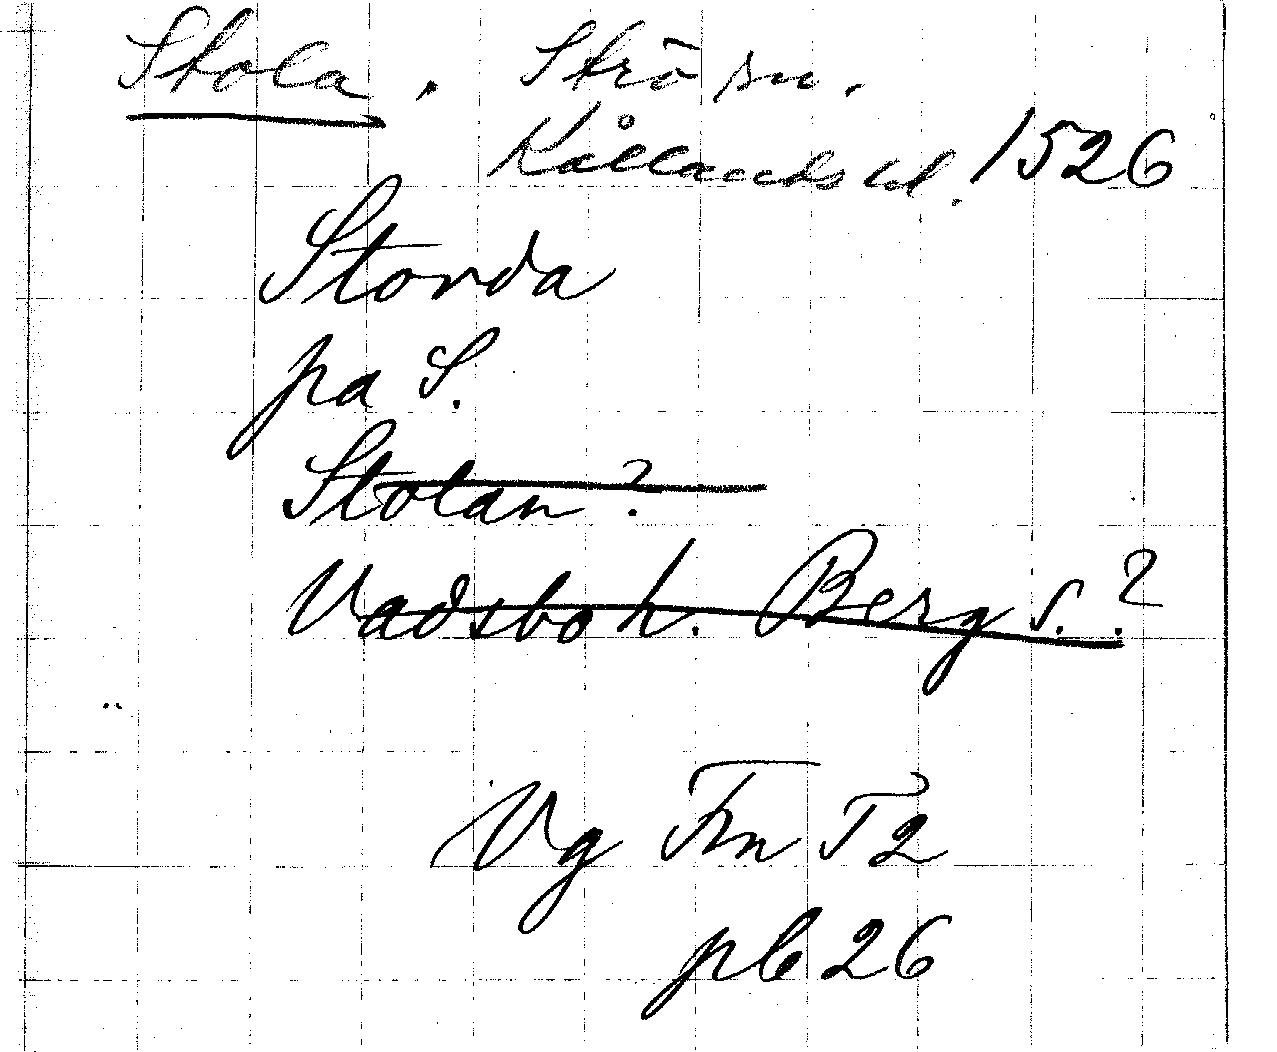 Stola. Strö sn.
Kållands hd. 1526
Storda
pa S.
Stolan?
Vadsbo h. Berg s.?
Vg Fm T 2
pb 26